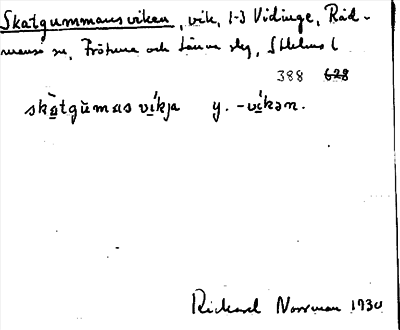 Skatgummansviken, vik, 1-3 Vidinge, Råd-
mansö sn, Frötuna och Länna slg, Sthlms l
388 628
skàtgŭmas víkja y. -víkən.
Rickard Norrman 1930